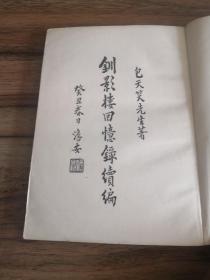 包天笑先生著
釧影樓回憶錄續編
癸丑春日淳安